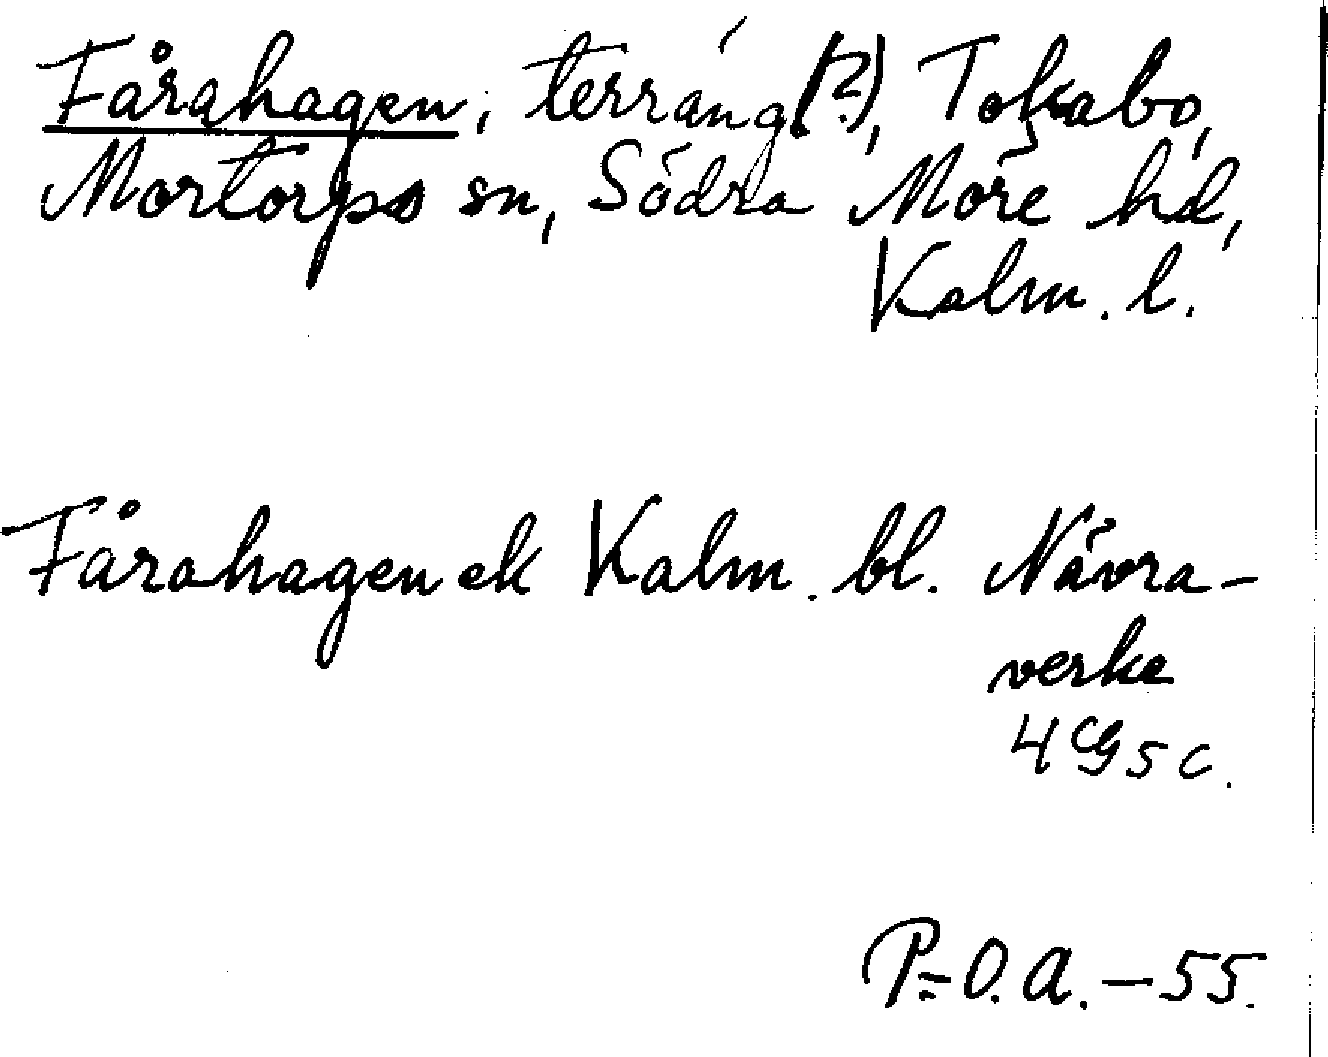 Fårahagen, terräng(?), Tokabo,
Mortorps sn, Södra Möre hd,
Kalm. l.
Fårahagen ek Kalm. bl. Nävra-
verke
4G5c.
P.-O.A.-55.